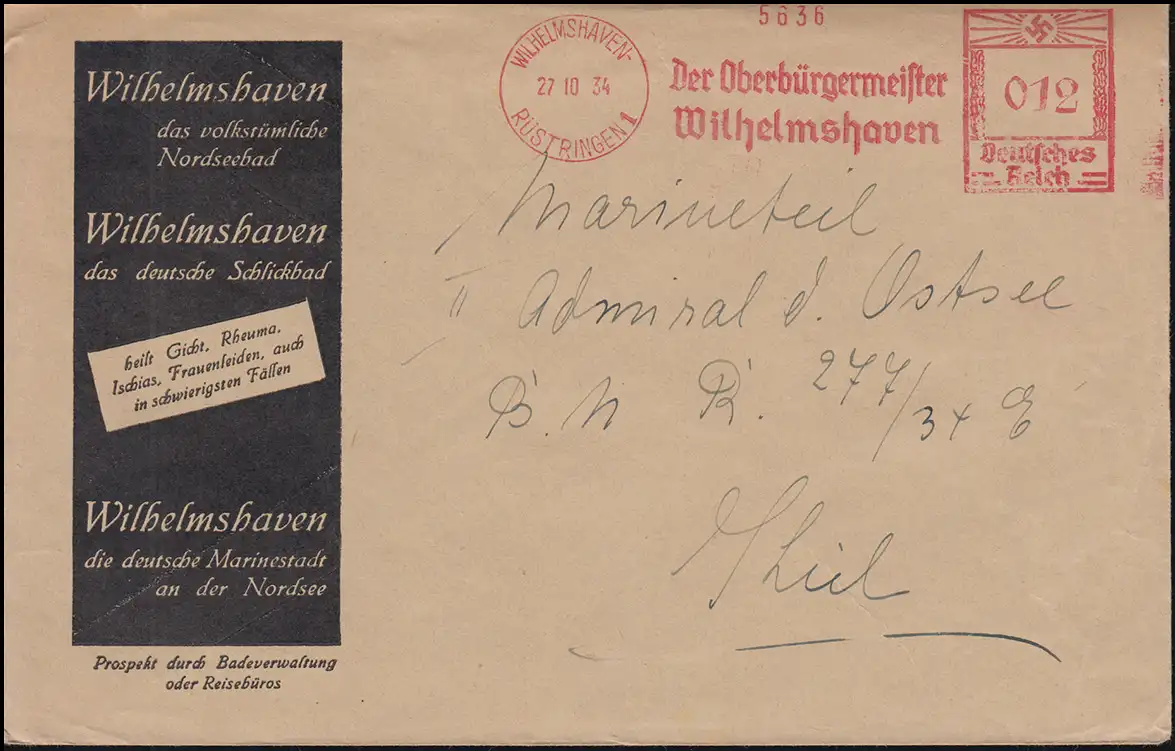 Wilhelmshaven
das volkstümliche
Nordseebad
Wilhelmshaven
das deutsche Schlickbad
heilt Gicht, Rheuma,
Ischias, Frauenleiden, auch
in schwierigsten Fällen
Wilhelmshaven
die deutsche Marinestadt
an der Nordsee
Prospekt durch Badeverwaltung
oder Reisebüros
WILHELMSHAVEN-
27 10 34
RÜSTRINGEN 1
5636
Der Oberbürgermeister
Wilhelmshaven
012
Deutsches
Reich
Marineteil
II Admiral d. Ostsee
B. N R. 277/34 E
Kiel